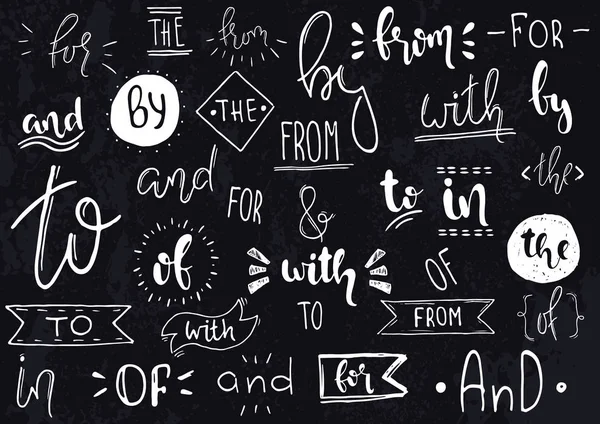 for
THE
from
by
from
FOR
and
BY
THE
FROM
with
by
to
and
FOR
&
to
in
the
of
with
OF
the
TO
with
TO
FROM
of
in
OF
and
for
AnD